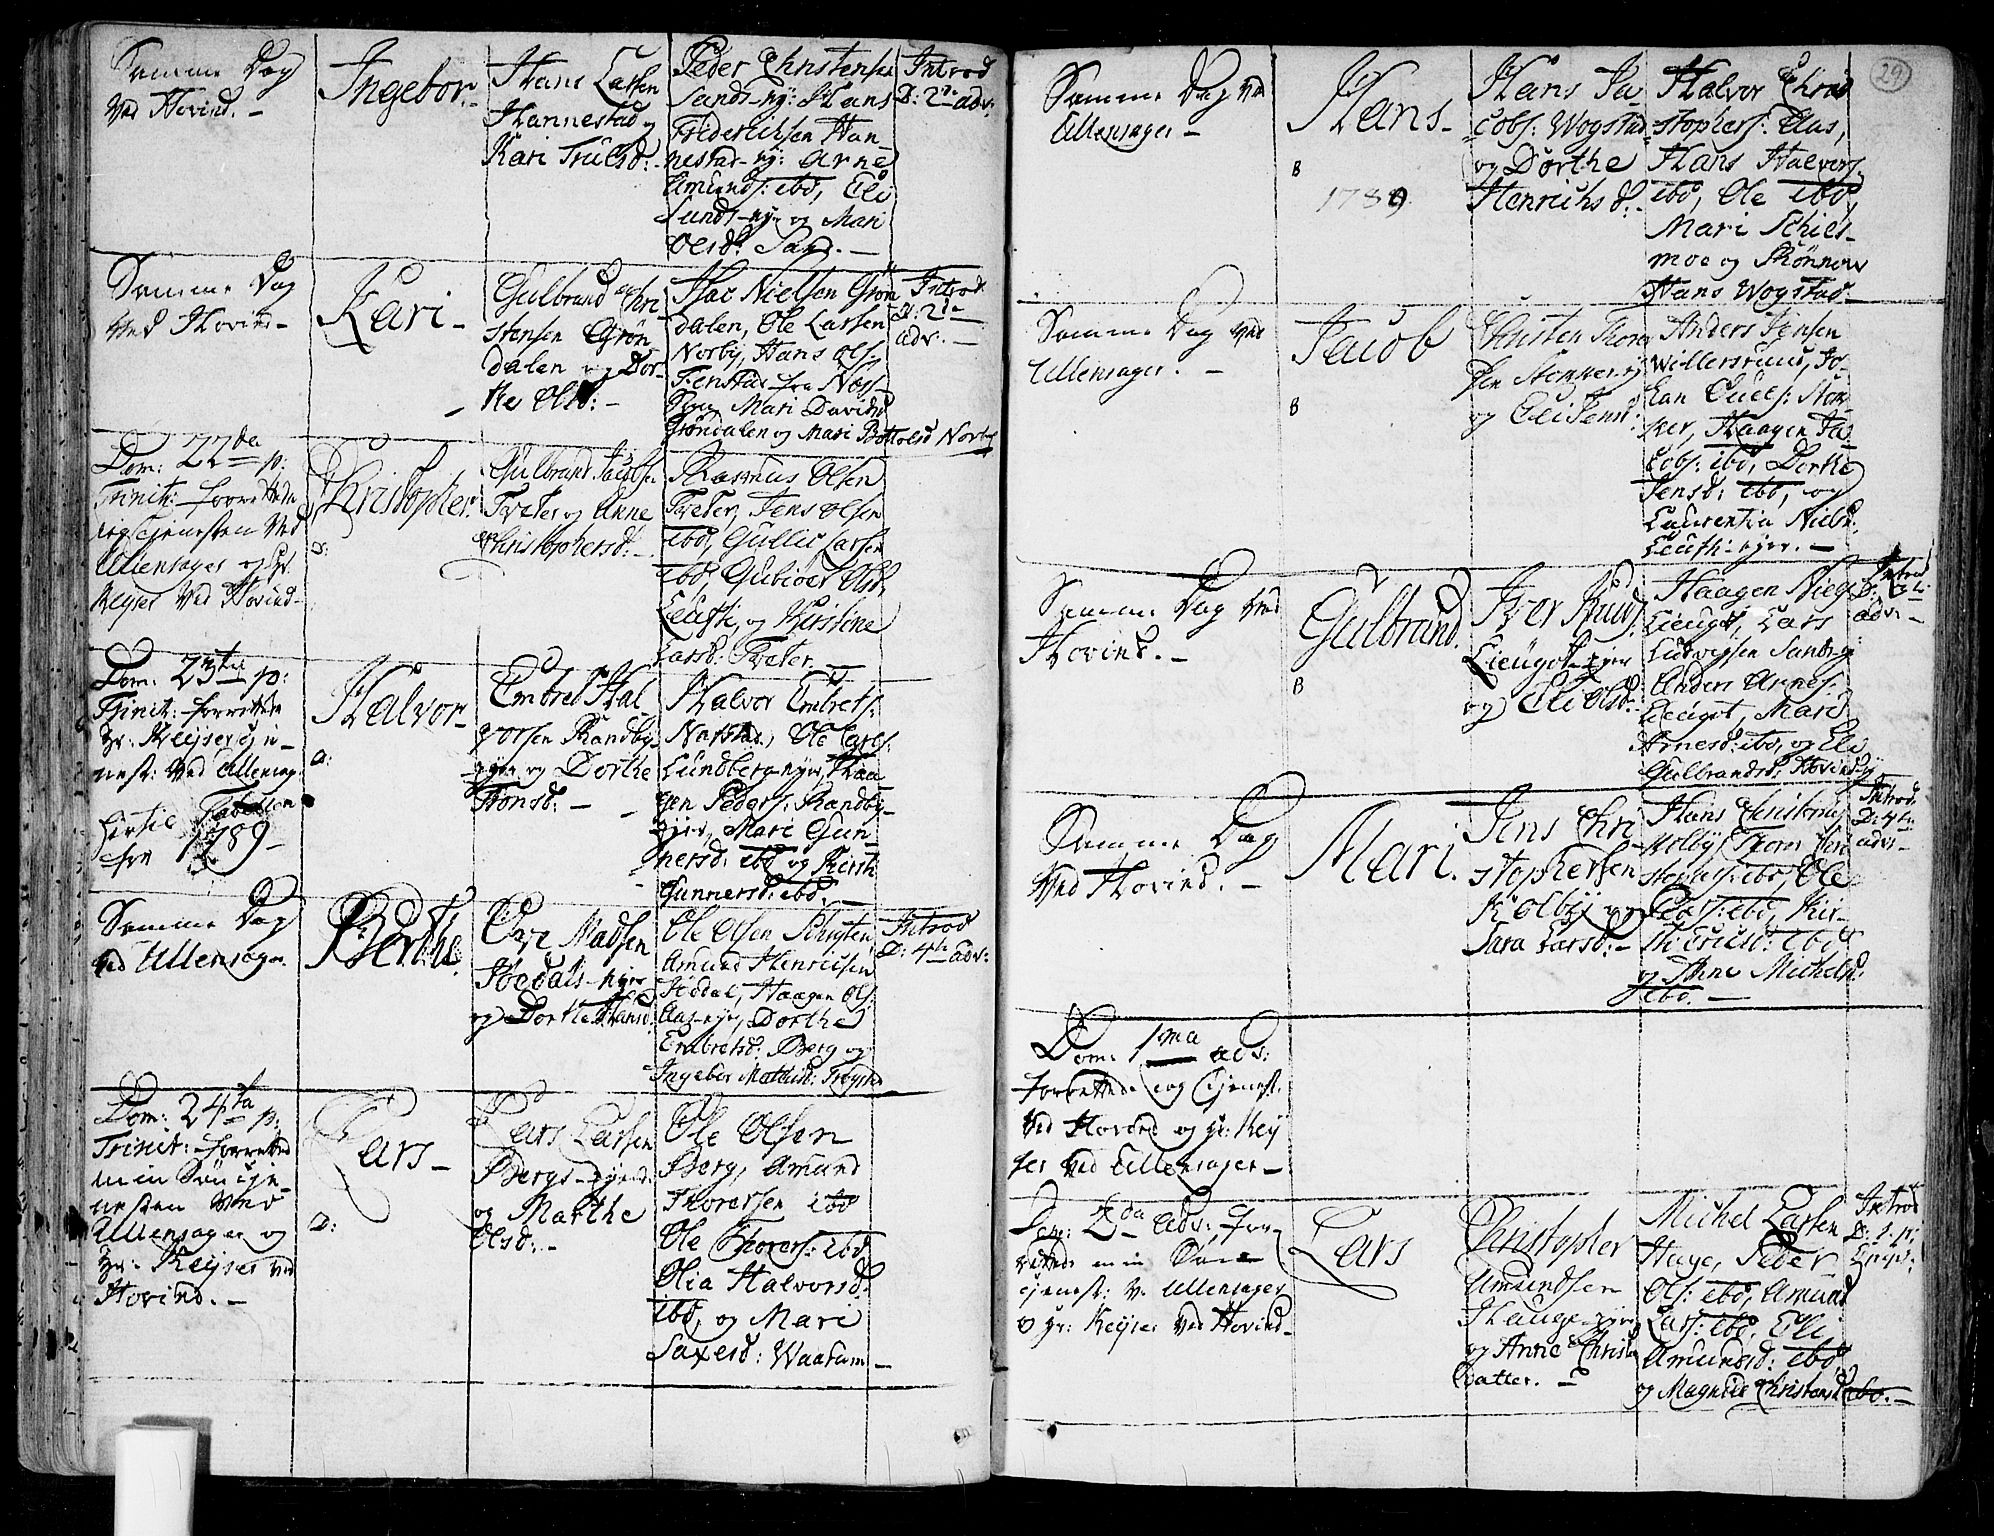 Samme Dag
ved Hovind. –
Ingebor.
Hans Larsen
Hannestad og
Kari Trulsd: –
Peder Christensen
Sands-ny: Hans
Frederichsen Han-
nestad-ny: Arne
Amunds: ibd, Eli
Sunds-nye og Mari
Olsd: Sand. –
Introd
D: 2de adv:
Samme Dag
ved Hovind –
Kari –
Gulbrand Chri-
stensen Grøn-
dalen og Dor-
the Olsd: –
Isac Nielsen Grøn
dalen, Ole Larsen
Norby, Hans Ols:
Fenstad fra Næss
Mari Davids
Grøndalen og Mari Bottolsd Norby
Introd
D: 2de
adv. –
Dom: 22da p:
Trinit: forrettede
jeg tjenesten ved
Ullensager og Hr.
Keyser ved Hovind –
Christopher.
Gulbrand Jacobsen
Tveter og Anne
Christophersd: –
Rasmus Olsen
Tveter, Jens Olsen
ibd, Gullic Larsen
ibd, Gubiør Olsd
og Kirstine
Larsd: Tveter. –
Dom: 23tia p:
Trinit: forrettede
Hr: Keyser tje-
nest: ved Ullensag:
hertil Tabellen
for 1789 –
Halvor –
Embret Hal-
vorsen Randby-
eyer og Dorthe
Tronsd: –
Halvor Embrets:
Nafstad, Ole Carls:
Lundberg-nyer, Haa
gen Peders: Randby-
eyer, Mari Gun-
nersd: ibd og Kirsti
Gunnersd: ibd. –
Samme Dag
ved Ullensager.
Berthe.
Ove Madsen
Hoedals-nyer
og Dorthe Hansd.
Ole Olsen
Amund Henricsen
Hoedal, Haagen Ols:
Aas-nye, Dorthe
Embretsd: Berg og
Ingebor
Introd
D: 4de Adv:
Dom: 24ta p:
Trinit: forretted
min Søn tje-
nesten ved
Ullensager og
Hr: Keyser ved
Hovind. –
Lars –
D:
Lars Larsen
Bergs-eyend:
og Marthe
Olsd: –
Ole Olsen
Berg, Amund
Thoresen ibd
Ole Thores: ibd
Olia Halvorsd:
ibd, og Mari
Saxesd: Waatum –
29
Samme Dag ved
Ullensager –
Hans –
B
1789
Hans Ja-
cobs: Wogstad
og Dorthe
Henrichsd: –
Halvor Chri-
stophers: Aas,
Hans Halvors:
ibd, Ole ibd,
Mari Schies-
moe og Rønnow
Hans Wogstad –
Samme Dag ved
Ullensager. –
Jacob
B
Christen Thore
sen
og Eli Jensd:
Anders Jensen
Willersruud, Jo-
han
Haagen Ja-
cobs: ibd, Dorthe
Jensd: ibd, og
Laurentia Niels:
–
Samme Dag ved
Hovind. –
Gulbrand.
B
Iver Knuds:
Lieugot-eyer
og Eli Olsd: –
Haagen Niels
Lieugot, Lars
Ludvigsen Sand-ey
Anders Arnes:
Lieugot, Mari
Arnesd: ibd, og Eli
Gulbrandsd: Hovind-ey
Introd
adv: –
Samme Dag
ved Hovind. –
Mari.
Jens Chri-
stophersen
Kolby og
Sara Larsd: –
Hans Christens
Kolby, Thorer Chri
stophers: ibd, Ole
Peds: ibd, Kir-
sti Ericsd: ibd
og Anne Michelsd:
ibd. –
Introd.
D: 4te
adv –
Dom: 1ma adv:
forrettede jeg Tjenest:
ved Hovind og Hr: Key
ser ved Ullensager –
Dom: 2da adv: for-
rettede min Søn
tjenest: v. Ullensager
og Hr: Keyser ved Hovind –
Lars
Christopher
Amundsen
Hauge-eyer
og Anne Christo
datter. –
Michel Larsen
Hage, Peder
Ols: ibd, Amund
Lars: ibd, Eli
Amundsd: ibd,
og Magnild Christensd ibd. –
Introd
D: 1. p: